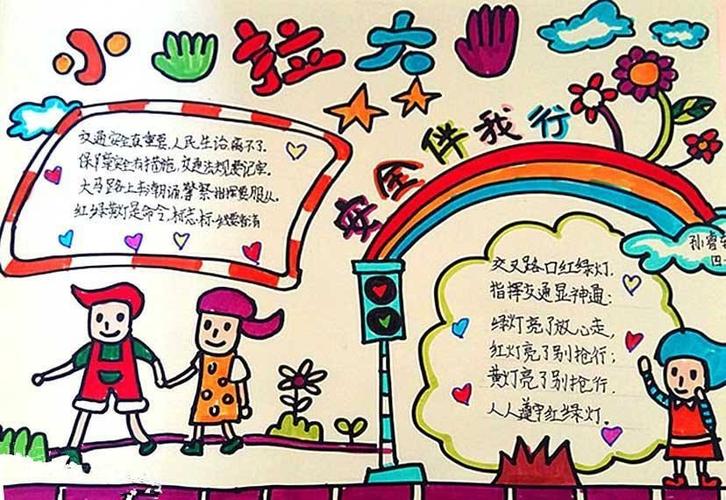 小拉大
安全伴我行
交通安全重要,人民生活离不了.
保障安全有措施,交通法规要记牢.
大马路上,警察指挥要服从.
红绿黄灯是命令,标志标
交叉路口红绿灯.
指挥交通显神通;
绿灯亮了放心走,
红灯亮了别抢行;
黄灯亮了别抢行.
人人遵守红绿灯.
孙睿
四